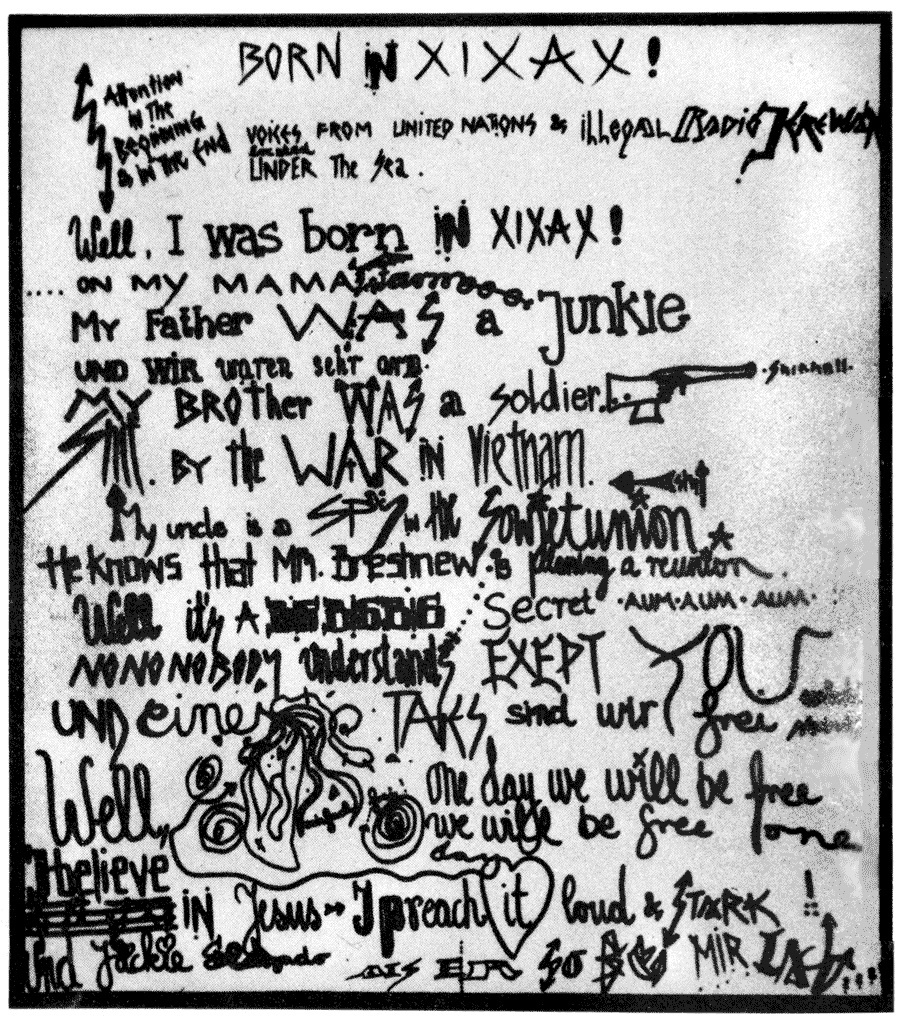 BORN iN XIXAX!
Attention
in The
Beginning
& in the End
VOICES FROM UNITED NATIONS & illEgAL Radio JEREWAN
UNDER The Sea.
Well, I was born IN XIXAX!
.... ON MY MAMAS
My Father WAS a Junkie
UND WIR waren sehr arm.
MY BROTHER WAS a Soldier.
Still. BY the WAR iN Vietnam.
My uncle is a Spy in the Sowjetunion
He Knows that Mr. Breshnew is planing a reunion.
Well it's A BIG BIG BIG Secret ·AUM·AUM·AUM·
NO NO NOBODY understands EXEPT YOU
UND eines TAGES sind wir frei
Well, One day we will be free
we will be free one
day
I believe
IN Jesus I preach it loud & STARK!
und Jackie
BIS ER SO BEI MIR LAG...